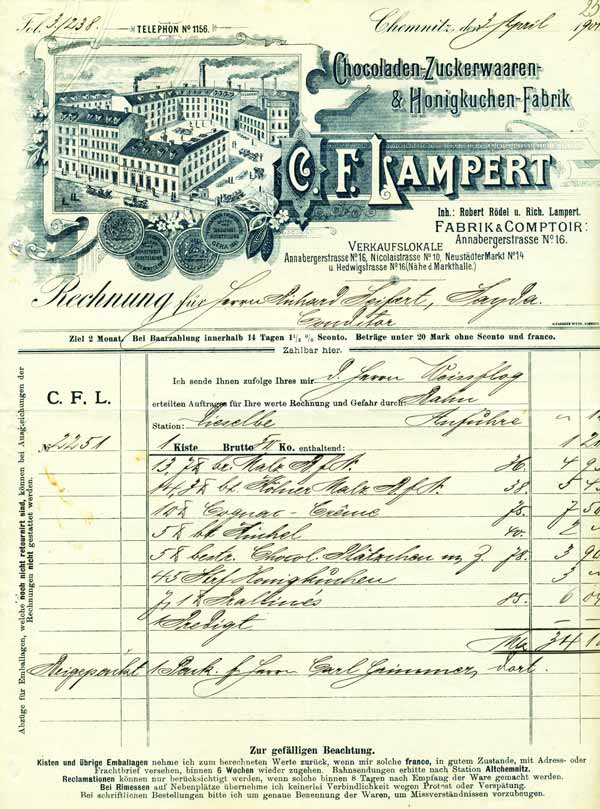 Tel. 3/1238.
TELEPHON No 1156.
Chemnitz, den 2. April
Chocoladen-Zuckerwaaren-
& Honigkuchen-Fabrik
C. F. LAMPERT
Inh.: Robert Rödel u. Rich. Lampert.
FABRIK & COMPTOIR:
Annabergerstrasse No 16.
VERKAUFSLOKALE
Annabergerstrasse No 16, Nicolaistrasse No 10, Neustädter Markt No 14
u. Hedwigstrasse No 16 (Nähe d. Markthalle.)
Rechnung für Herrn Richard Seifert, Sayda
Conditor
Ziel 2 Monat. Bei Baarzahlung innerhalb 14 Tagen 1½ % Sconto. Beträge unter 20 Mark ohne Sconto und franco.
Zahlbar hier.
Ich sende Ihnen zufolge Ihres mir d. Herrn Weissflog
C. F. L.
erteilten Auftrages für Ihre werte Rechnung und Gefahr durch: Bahn
Station: Anführe
No 2251 1 Kiste Brutto Ko. enthaltend: 1
13 Malz 36 4
Malz 38 5
Cognac-Crême 75 7 50
40 2
Chocol. Plätzchen 78 3 90
45 Honigkuchen 3
Pralinés 85 6
1 Predigt
Mk 34
Beigepackt 1 Pack. f. Herrn Carl Grimmer, dort.
Abzüge für Emballagen, welche noch nicht retournirt sind, können bei Ausgleichungen der
Rechnungen nicht gestattet werden.
Zur gefälligen Beachtung.
Kisten und übrige Emballagen nehme ich zum berechneten Werte zurück, wenn mir solche franco, in gutem Zustande, mit Adress- oder
Frachtbrief versehen, binnen 6 Wochen wieder zugehen. Bahnsendungen erbitte nach Station Altchemnitz.
Reclamationen können nur berücksichtigt werden, wenn solche binnen 8 Tagen nach Empfang der Ware gemacht werden.
Bei Rimessen auf Nebenplätze übernehme ich keinerlei Verbindlichkeit wegen Protest oder Verspätung.
Bei schriftlichen Bestellungen bitte ich um genaue Benennung der Waren, um Missverständnissen vorzubeugen.